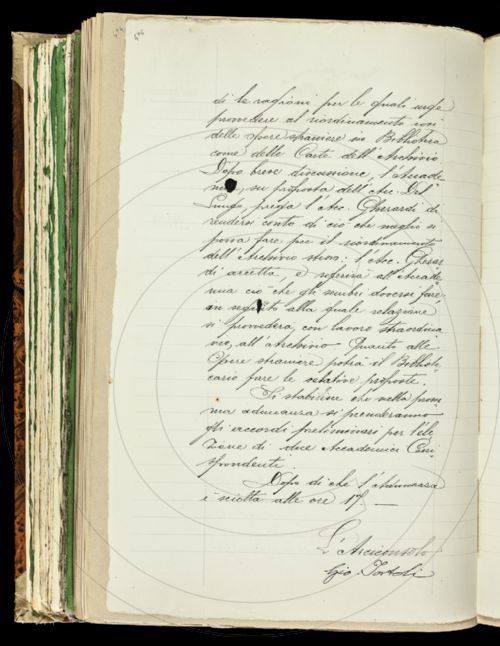 di le ragioni per le quali urge
provvedere al riordinamento così
delle opere straniere in Biblioteca
come delle Carte dell'Archivio
Dopo breve discussione, l'Accade
mia, su proposta dell'Acc. Del
Lungo prega l'Acc. Gherardi di
rendersi conto di ciò che meglio si
possa fare per il riordinamento
dell'Archivio stesso: l'Acc. Gherar
di accetta, e riferirà all'Accade=
mia ciò che gli sembri doversi fare,
in seguito alla quale relazione
si provvederà, con lavoro straordina
rio, all'Archivio. Quanto alle
Opere straniere potrà il Bibliote
cario fare le relative proposte.
Si stabilisce che nella pross
ma adunanza si prenderanno
gli accordi preliminari per l'ele
zione di due Accademici Corri
spondenti.
Dopo di che l'Adunanza
è sciolta alle ore 17. —
L'Arciconsolo